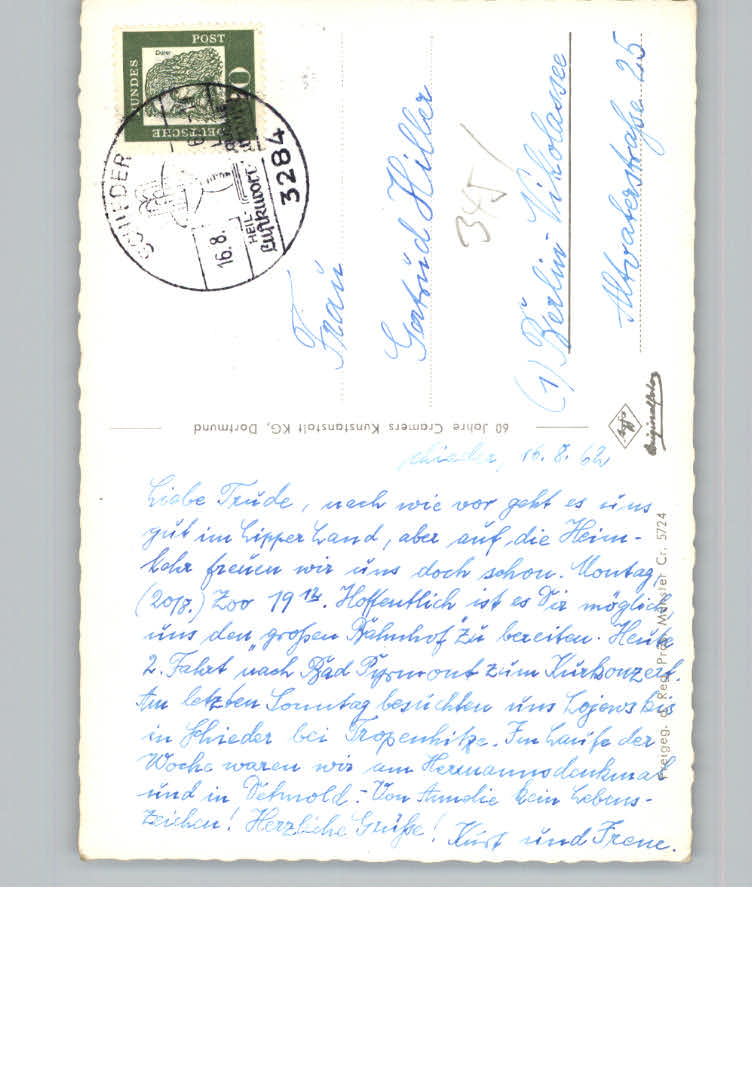 Schieder, 16.8.62
Liebe Trude, nach wie vor geht es uns
gut im Lipper Land, aber auf die Heim-
kehr freuen wir uns doch schon. Montag,
(20/8.) Zoo 19 12. Hoffentlich ist es Dir möglich,
uns den „großen Bahnhof" zu bereiten. Heute
2. Fahrt nach Bad Pyrmont zum Kurkonzert.
Am letzten Sonntag besuchten uns Lojewskis
in Schieder bei Tropenhitze. Im Laufe der
Woche waren wir am Hermannsdenkmal
und in Detmold. - Von Amelie kein Lebens-
zeichen! Herzliche Grüße! Kurt und Irene.
Frau
Gertrud Hiller
(1) Berlin-Nikolassee
Altvaterstraße 25
345
DEUTSCHE BUNDESPOST
Dürer
SCHIEDER
16.8.
HEIL-
Luftkurort
3284
60 Jahre Cramers Kunstanstalt KG, Dortmund
Agfa
Originalfoto
Freigeg. d. Reg. Präs. Münster Cr. 5724